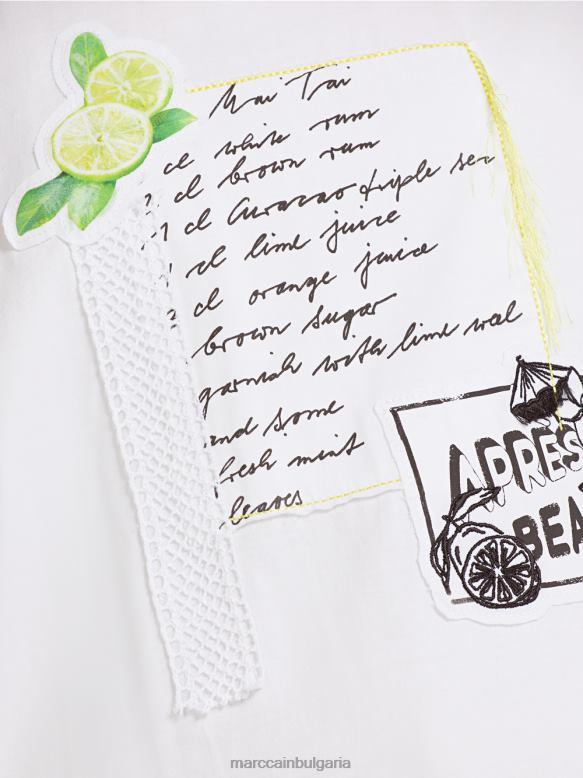 Mai Tai
cl white rum
cl brown rum
1 cl Curacao triple sec
cl lime juice
cl orange juice
brown sugar
garnish with lime
and some
fresh mint
leaves
APRES
BEA
marccainbulgaria